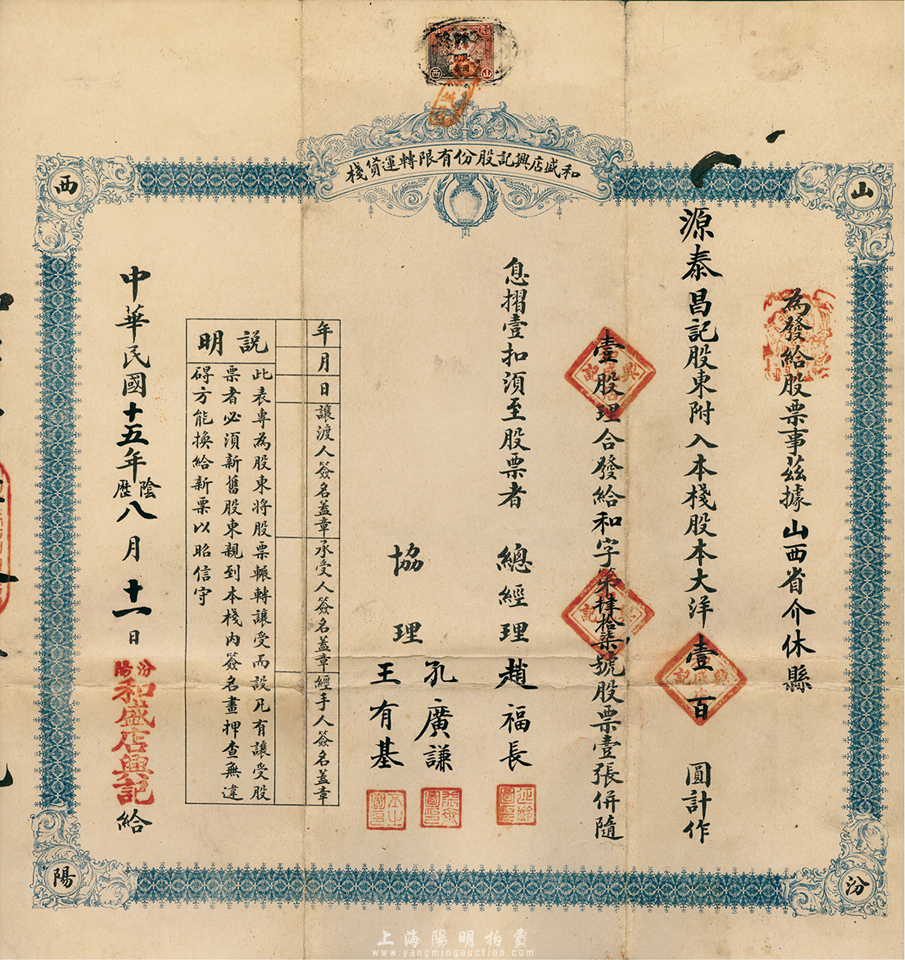 和盛店興記股份有限轉運貨棧
山
西
汾
陽
為發給股票事茲據山西省介休縣
源泰昌記股東附入本棧股本大洋壹百 圓計作
壹股理合發給和字第肆拾柒號股票壹張併隨
息摺壹扣須至股票者
總經理趙福長
協理
孔廣謙
王有基
年月日
讓渡人簽名蓋章
承受人簽名蓋章
經手人簽名蓋章
說明
此表專為股東將股票輾轉讓受而設凡有讓受股
票者必須新舊股東親到本棧內簽名畫押查無違
碍方能換給新票以昭信守
中華民國十五年陰歷八月十一日
汾陽和盛店興記給
上海陽明拍賣
www.yangmingauction.com